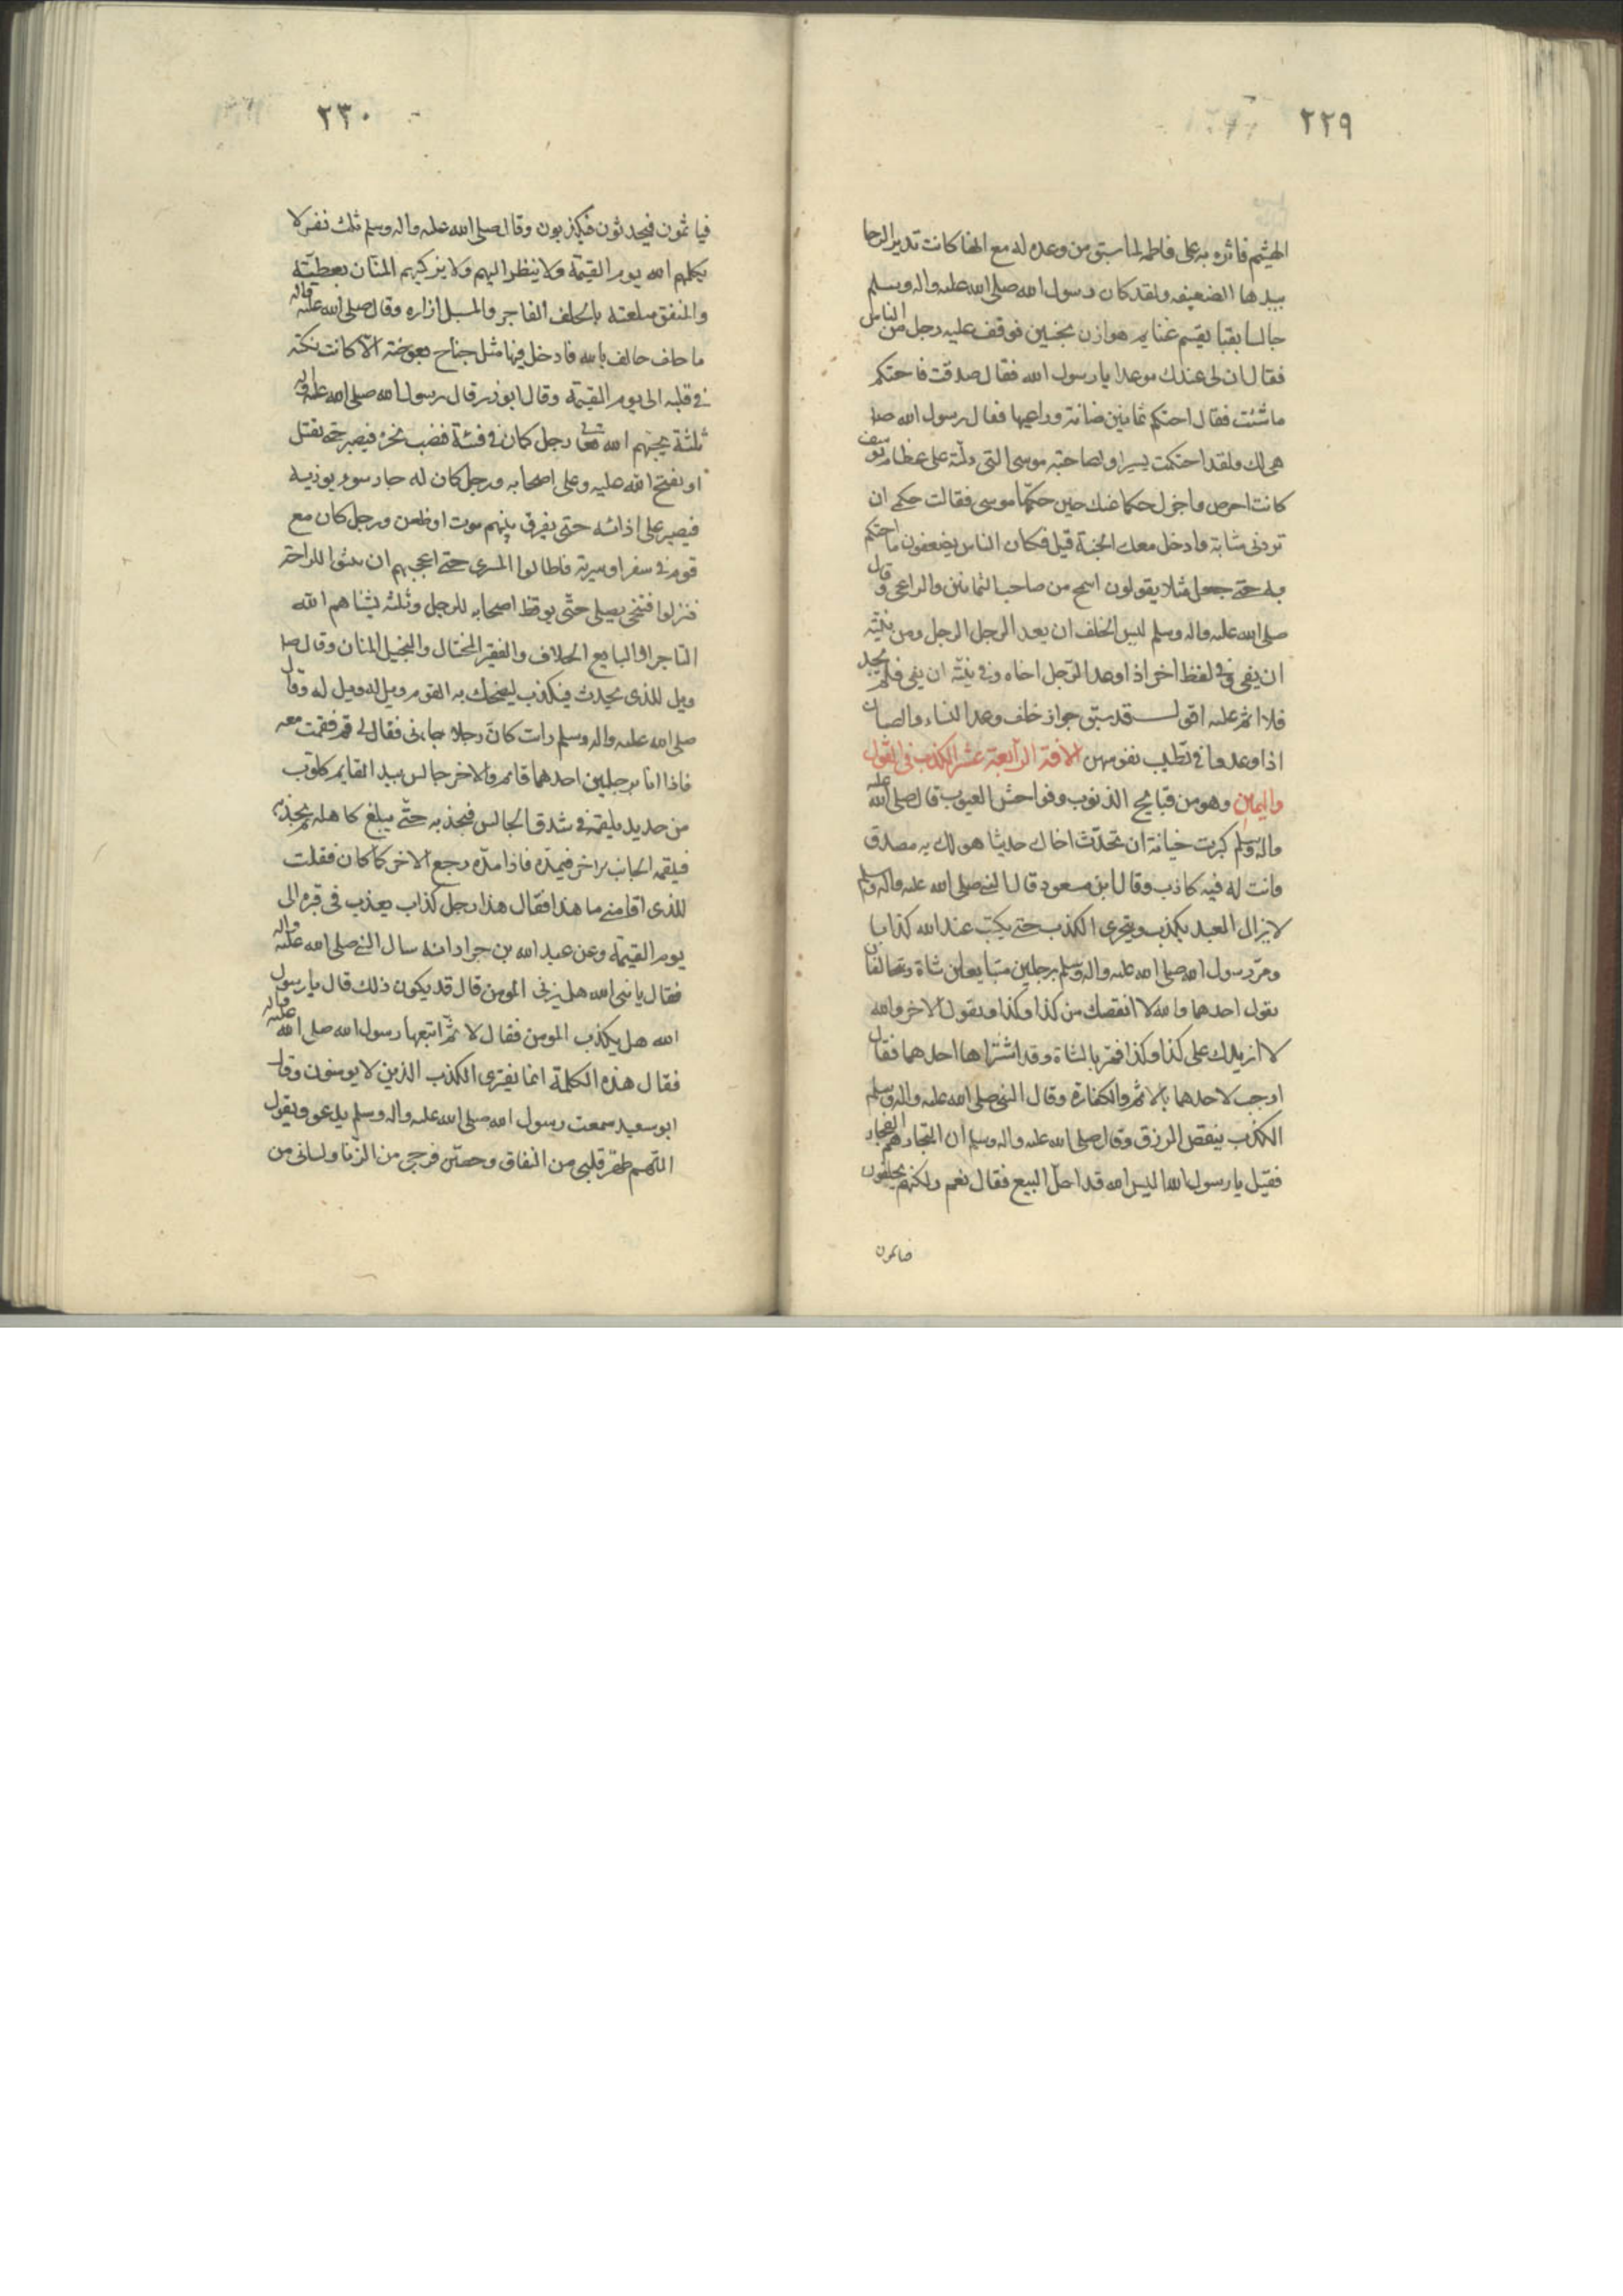 ٢٢٩
الهيثم فاثره به على فاطمة لما سبق من وعده له مع انها كانت تدير الرحا
بيدها الضعيفه ولقد كان رسول الله صلى الله عليه واله وسلم
جالسا يقسم غنايم هوازن بحنين فوقف عليه رجل من الناس
فقال ان لى عندك موعدا يا رسول الله فقال صدقت فاحتكم
ما شئت فقال احتكم ثمانين ضانة وراعيها فقال رسول الله صلى
هى لك ولقد احتكمت يسيرا ولصاحبة موسى التى دلته على عظام يوسف
كانت احرص واجزل حكما منك حين حكمها موسى فقالت حكمى ان
تردنى شابة وادخل معك الجنة قيل فكان الناس يضعفون ما احتكم
به حتى جعل مثلا يقولون اسمح من صاحب الثمانين والراعى وقال
صلى الله عليه واله وسلم ليس الخلف ان يعد الرجل الرجل ومن نيته
ان يفى وفى لفظ اخر اذا وعد الرجل اخاه وفى نيته ان يفى فلم يجد
فلا اثم عليه اقول قد سبق جواز خلف وعد النساء والصبيان
اذا وعدوا فى تطيب نفوسهن الافة الرابعة عشر الكذب فى القول
واليمين وهو من قبايح الذنوب وفواحش العيوب قال صلى الله عليه
واله وسلم كبرت خيانة ان تحدث اخاك حديثا هو لك به مصدق
وانت له فيه كاذب وقال ابن مسعود قال النبى صلى الله عليه واله وسلم
لا يزال العبد يكذب ويتحرى الكذب حتى يكتب عند الله كذابا
ومر رسول الله صلى الله عليه واله وسلم برجلين يتبايعان شاة ويتحالفان
يقول احدهما والله لا انقصك من كذا وكذا ويقول الاخر والله
لا ازيدك على كذا وكذا فمر بالشاة وقد اشتراها احدهما فقال
اوجب لاحدهما بالاثم والكفارة وقال النبى صلى الله عليه واله وسلم
الكذب ينقص الرزق وقال صلى الله عليه واله وسلم ان التجار هم الفجار
فقيل يا رسول الله اليس الله قد احل البيع فقال نعم ولكنهم يحلفون
٢٣٠
فياثمون فيحدثون فيكذبون وقال صلى الله عليه واله وسلم ثلث نفر لا
يكلمهم الله يوم القيمة ولا ينظر اليهم ولا يزكيهم المنان بعطيته
والمنفق سلعته بالحلف الفاجر والمسبل ازاره وقال صلى الله عليه واله
ما حلف حالف بالله فادخل فيها مثل جناح بعوضة الا كانت نكتة
فى قلبه الى يوم القيمة وقال ابوذر قال رسول الله صلى الله عليه واله
ثلثة يحبهم الله تعالى رجل كان فى فئة فنصب نحره فيصبر حتى يقتل
او يفتح الله عليه وعلى اصحابه ورجل كان له جار سوء يوذيه
فيصبر على اذائه حتى يفرق بينهم موت او ظعن ورجل كان مع
قوم فى سفر او سرية فاطالوا السرى حتى اعجبهم ان يمسوا للراحة
فنزلوا فتنحى يصلى حتى يوقظ اصحابه للرحيل وثلثة يشناهم الله
التاجر او البايع الحلاف والفقير المختال والبخيل المنان وقال صلى
ويل للذى يحدث فيكذب ليضحك به القوم ويل له ويل له وقال
صلى الله عليه واله وسلم رايت كان رجلا جاءنى فقال لى قم فقمت معه
فاذا انا برجلين احدهما قائم والاخر جالس بيد القايم كلوب
من حديد يلقمه فى شدق الجالس فيجذبه حتى يبلغ كاهله ثم يجذبه
فيلقمه الجانب الاخر فيمده فاذا مده رجع الاخر كما كان فقلت
للذى اقامنى ما هذا فقال هذا رجل كذاب يعذب فى قبره الى
يوم القيمة وعن عبد الله بن جراد انه سال النبى صلى الله عليه واله
فقال يا نبى الله هل يزنى المومن قال قد يكون ذلك قال يا رسول
الله هل يكذب المومن فقال لا ثم اتبعها رسول الله صلى الله عليه واله
فقال هذه الكلمة انما يفترى الكذب الذين لا يومنون وقال
ابو سعيد سمعت رسول الله صلى الله عليه واله وسلم يدعو ويقول
اللهم طهر قلبى من النفاق وحصن فرجى من الزنا ولسانى من